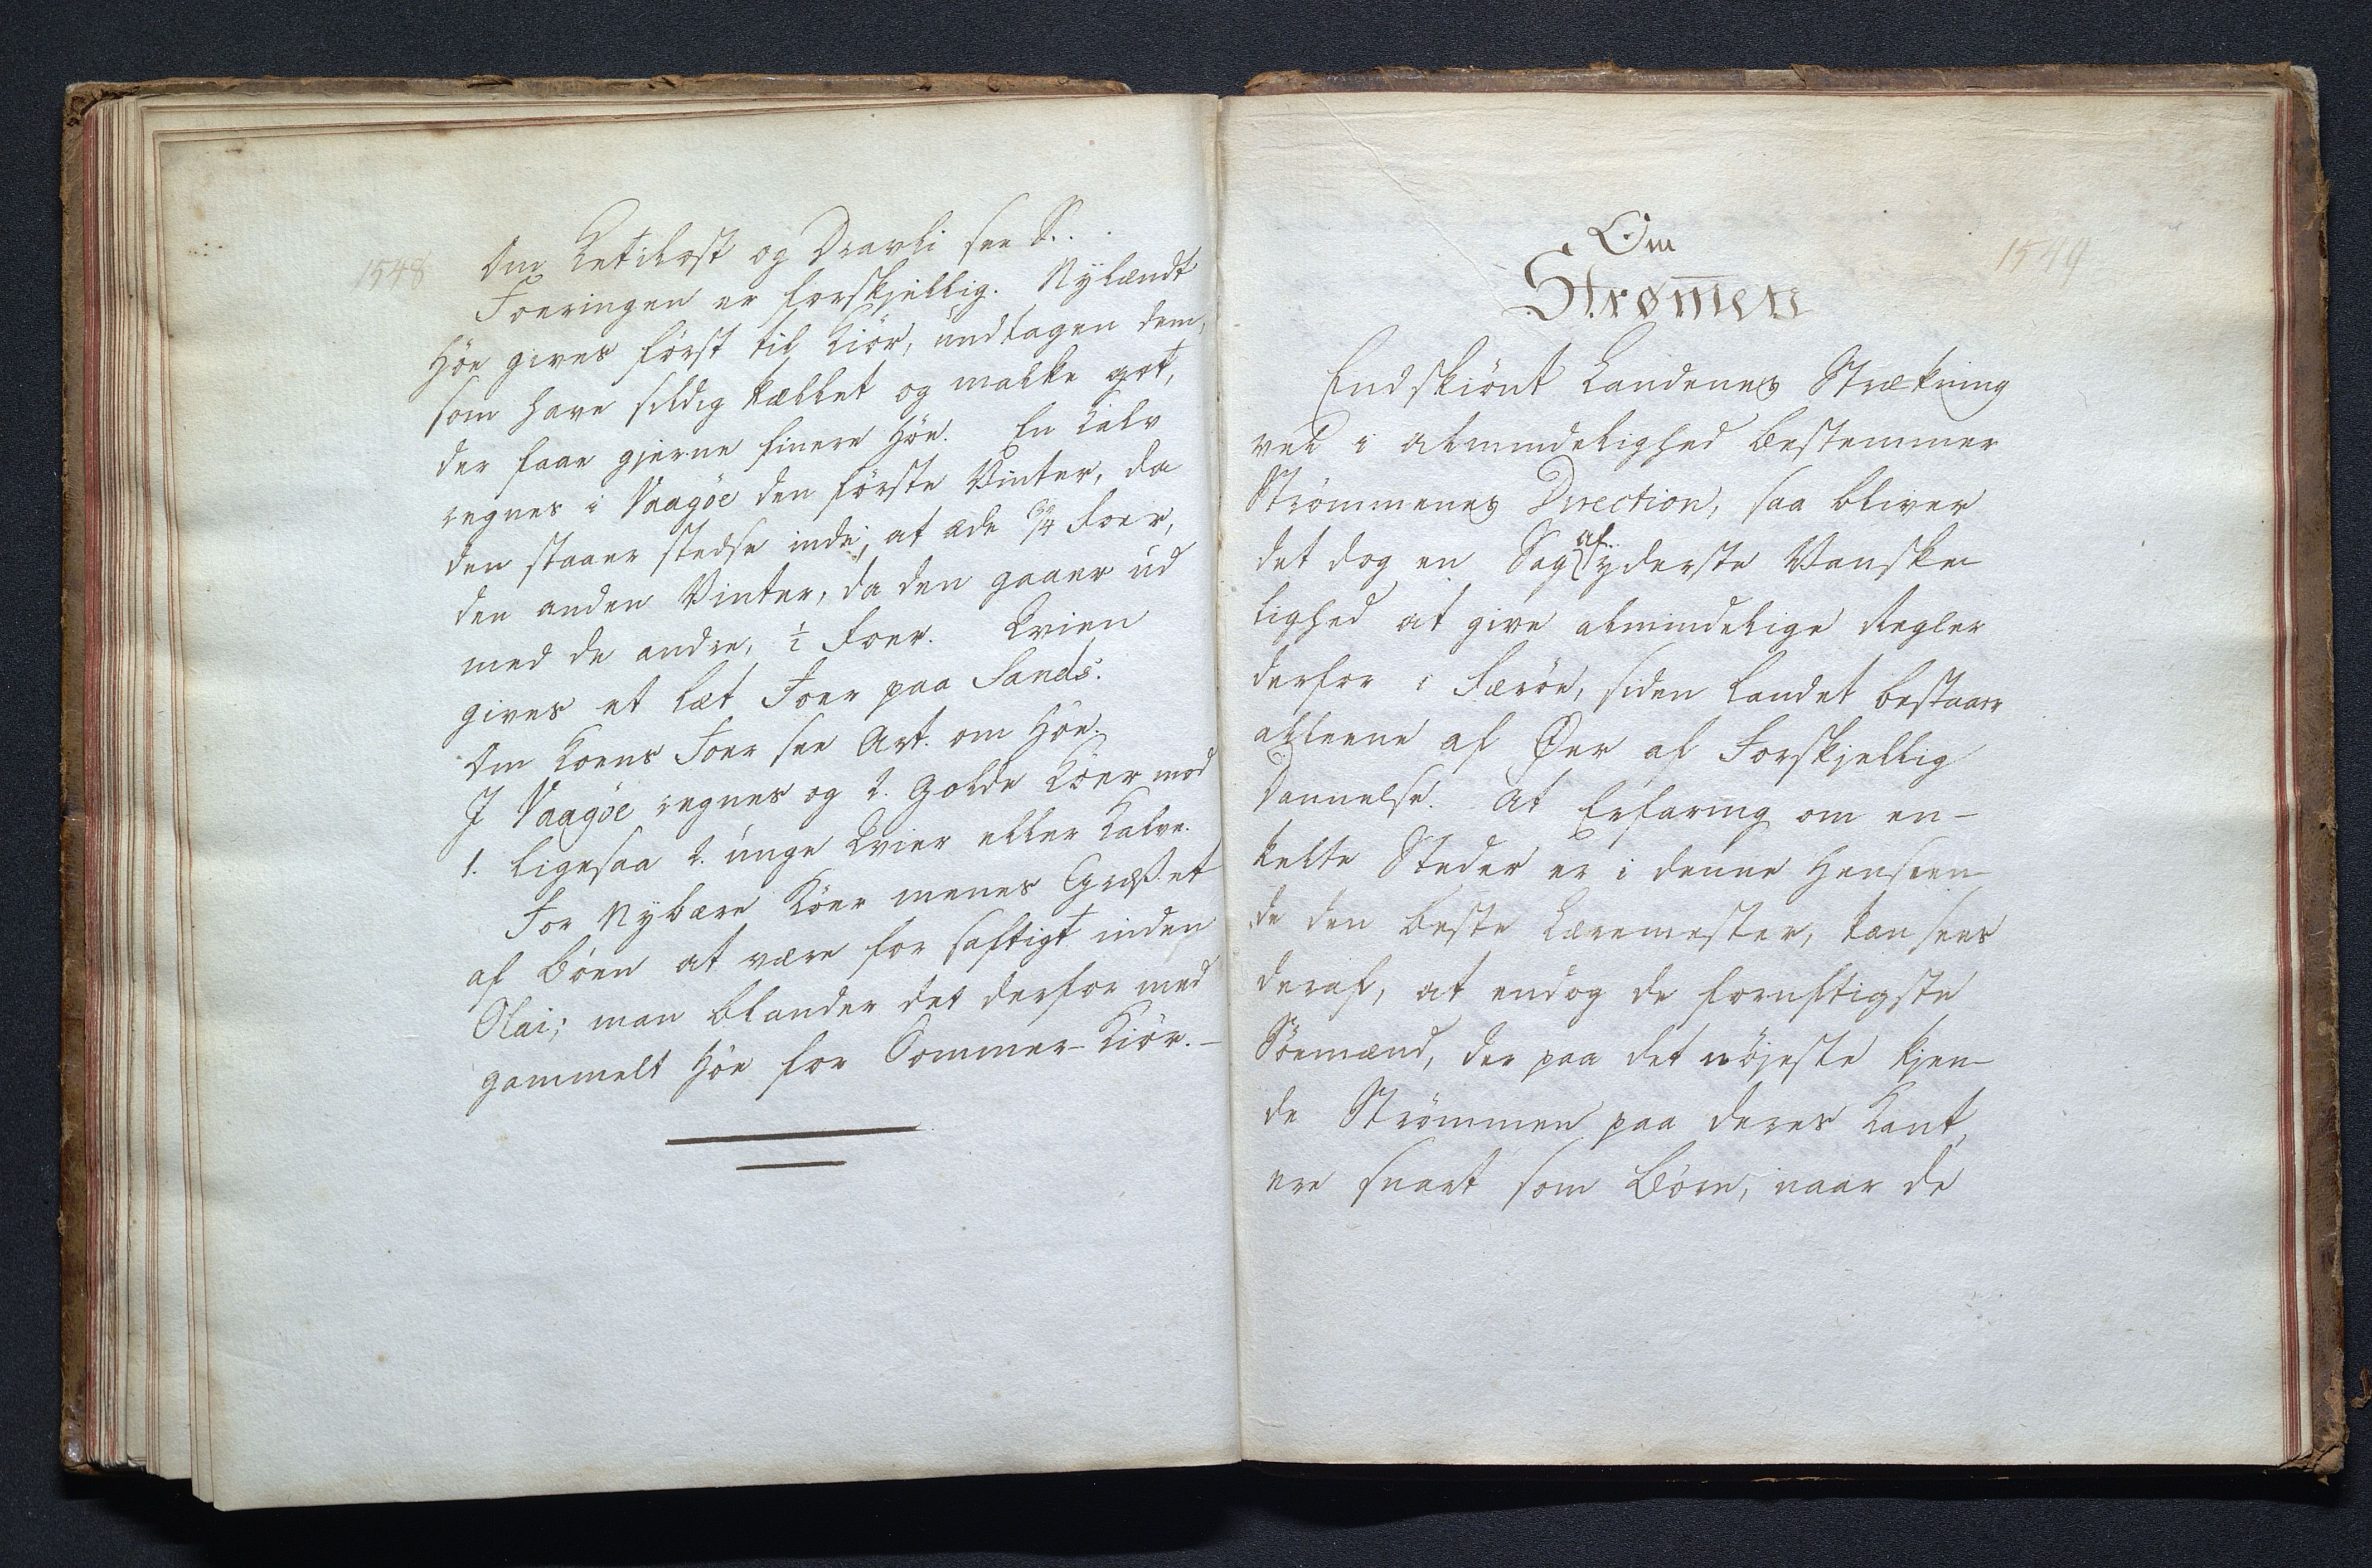 1548
Om Ketilost og Dravli see S. .
Foeringen er forskjellig. Nylændt
Höe gives först til Kiör, undtagen dem,
som have sildig kællet og malke got,
der faae gjerne finere Höe. En Kalv
regnes i Vaagöe den förste Vinter, da
den staaer stedse inde, at æde 3/4 Foer,
den anden Vinter, da den gaaer ud
med de andre, 1/2 Foer. Qvien
gives et læt Foer paa Sands.
Om Koens Foer see Art. om Höe.
I Vaagöe regnes og 2. golde Köer mod
1. ligesaa 2. unge Qvier eller Kalve.
For nybære Köer menes Græsset
af Böen at være for saftigt inden
Olai; man blander det derfor med
gammelt Höe for Sommer-Kiör.-
1549
Om
Strømen
Endskiönt Landenes Strækning
vel i Almindelighed bestemmer
Strömmenes Direction, saa bliver
det dog en Sag af yderste Vanske
lighed at give almindelige Regler
derfor i Færöe, siden Landet bestaar
alleene af Øer af forskjellig
Dannelse. At Erfaring om en-
kelte Steder er i denne Henseen
de den beste Læremester, kan sees
deraf, at endog de fornuftigste
Söemænd, der paa det nöjeste kjen
de Strömmen paa deres Kant,
ere snart som Börn, naar de